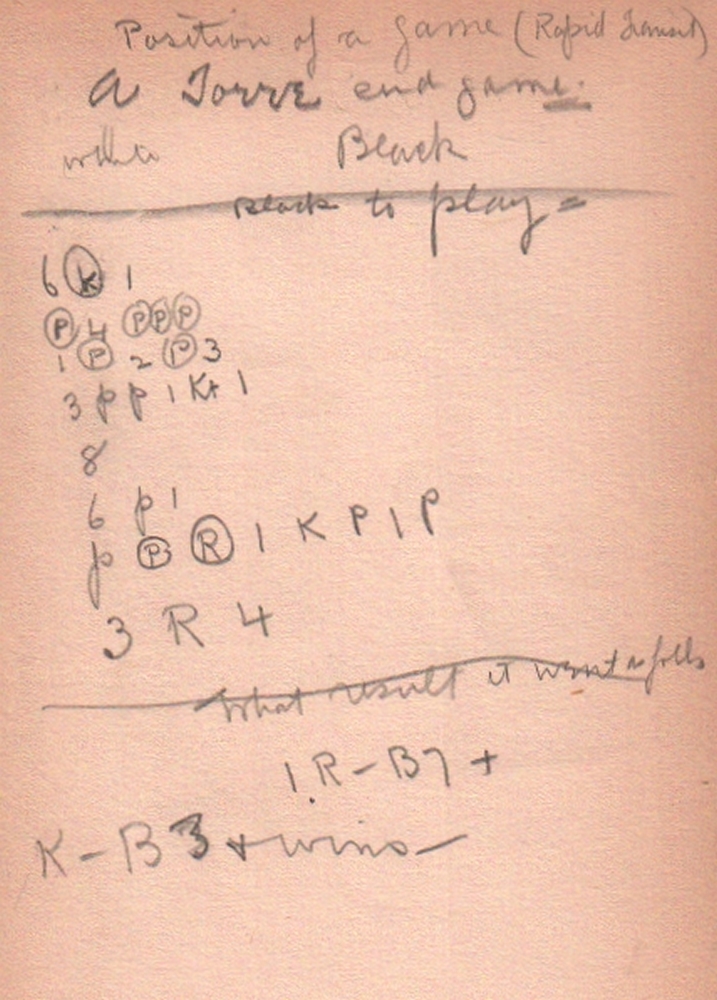 Position of a game (Rapid Transit)
A Torre end game.
white Black
Black to play =
6 K 1
P 4 PPP
1 P 2 P 3
3 P P 1 Kt 1
8
6 P 1
P P R 1 K P 1 P
3 R 4
What result it went as folls
1. R - B7 +
K - B3 + wins